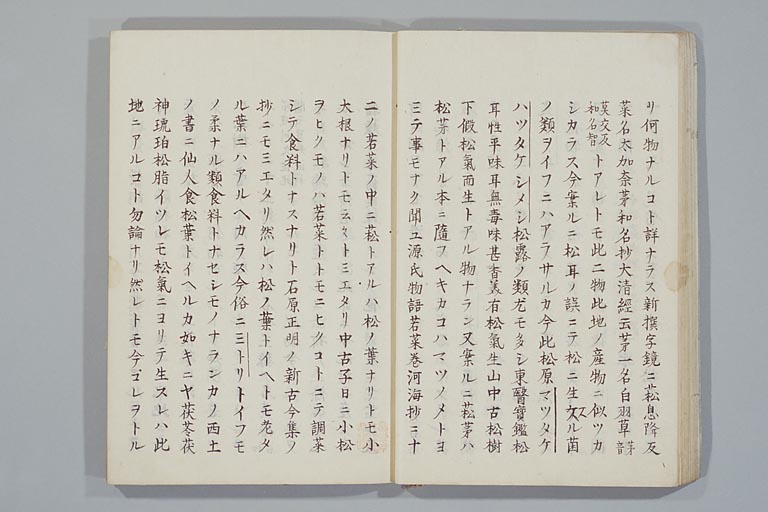 リ何物ナルコト詳ナラス新撰字鏡ニ菘息隆反
菜名太加奈茅和名抄大清經云茅一名白羽草
莫交反
和名智
トアレトモ此二物此地ノ産物ニ似ツカ
シカラス今案ルニ松耳ノ誤ニテ松ニ生スル菌
ノ類ヲイフニハアラサルカ今此松原マツタケ
ハツタケシメシ松露ノ類尤モ多シ東醫寶鑑松
耳性平味耳無毒味甚香美有松氣生山中古松樹
下假松氣而生トアル物ナラン又案ルニ菘茅ハ
松茅トアル本ニ隨フヘキカコハマツノメトヨ
ミテ事モナク聞ユ源氏物語若菜巻河海抄ニ十
二ノ若菜ノ中ニ菘トアルハ松ノ葉ナリトモ小
大根ナリトモ云々トミエタリ中古子日ニ小松
ヲヒクモノハ若菜トトモニヒクコトニテ調菜
シテ食料トナスナリト石原正明ノ新古今集ノ
抄ニモミエタリ然レハ松ノ葉トイヘトモ老タ
ル葉ニハアルヘカラス今俗ニ三トリトイフモ
ノ柔ナル類食料トナセシモノナランカノ西土
ノ書ニ仙人食松葉トイヘルカ如キニヤ茯苓茯
神琥珀松脂イツレモ松氣ニヨリテ生スレハ此
地ニアルコト勿論ナリ然レトモ今ゴレヲトル